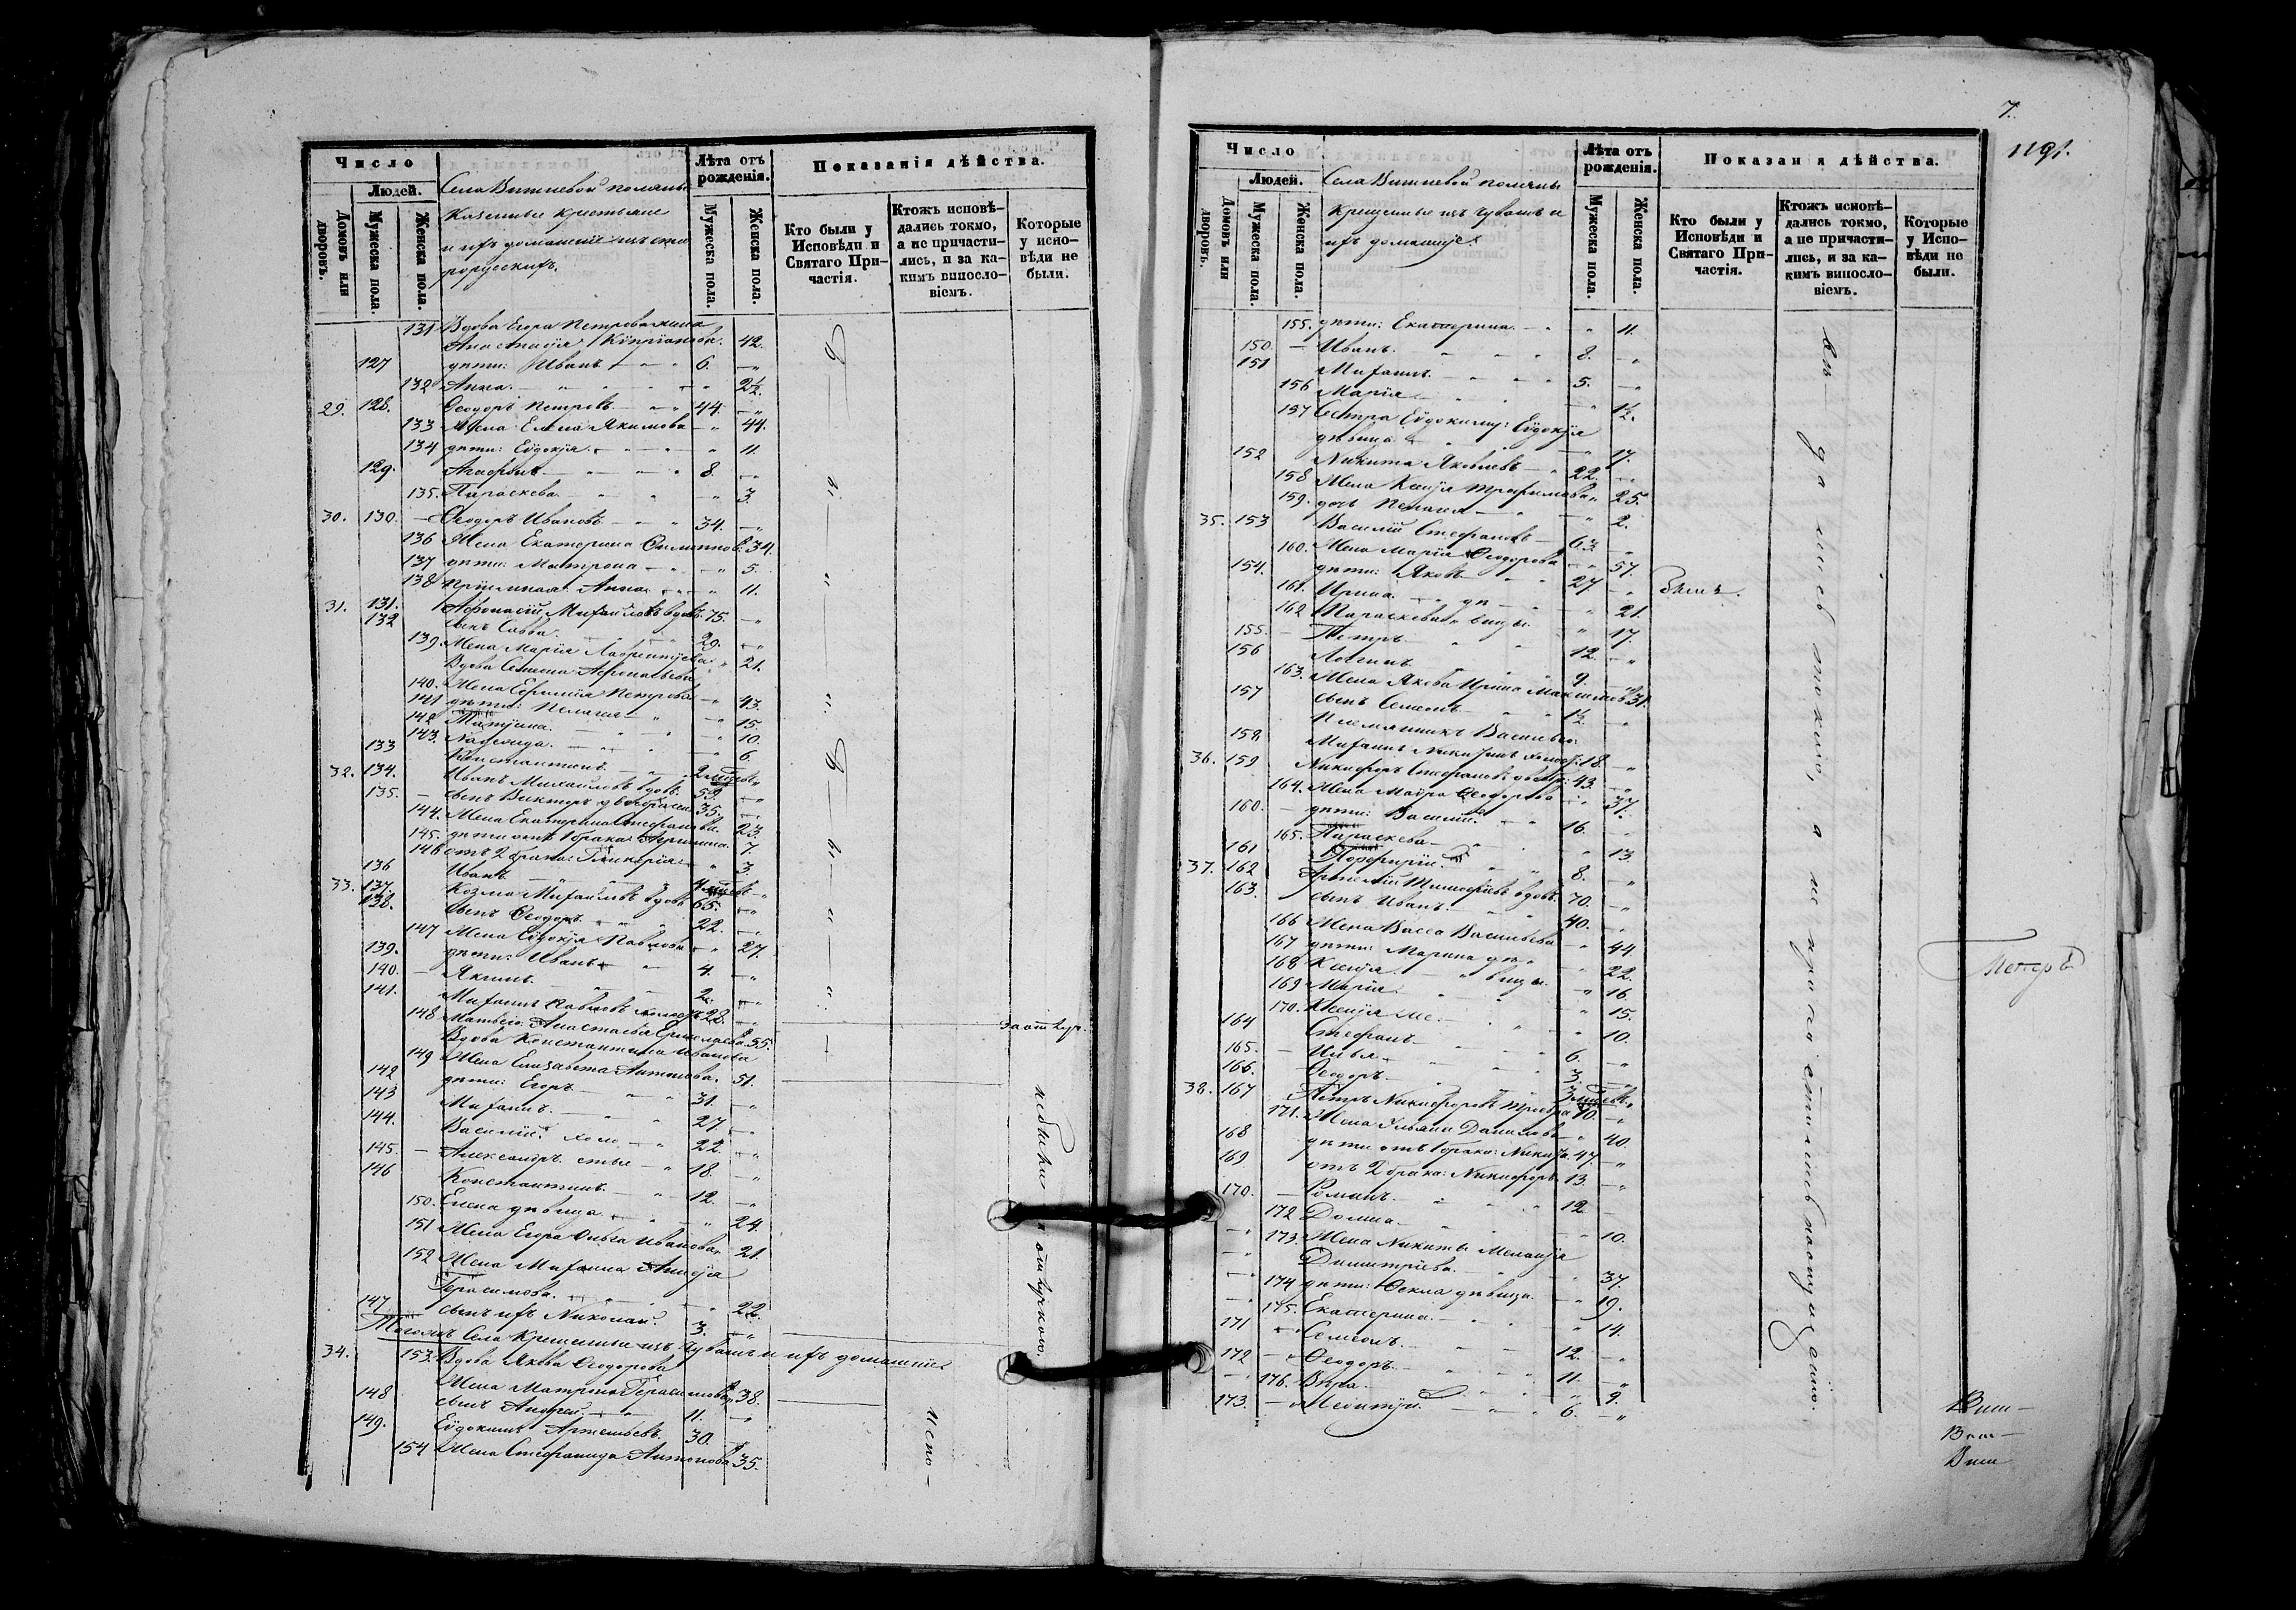 Число
Людей.
Домовъ или дворовъ.
Мужеска пола.
Женска пола.
Села Вишневой поляны
Казенные крестьяне
и ихъ домашніе изъ ста
рорусскихъ.
Лѣта отъ рожденія.
Мужеска пола.
Женска пола.
Показанія дѣйства.
Кто были у Исповѣди и Святаго При-частія.
Ктожъ исповѣ-дались токмо, а не причасти-лись, и за ка-кимъ винносло-віемъ.
Которые у испо-вѣди не были.
131 Вдова Егора Петрова жена
Анастасія Кипріанова. 42.
127 дѣти: Иванъ 6.
132 Анна. 2½.
29. 128. Ѳеодоръ Петровъ 44.
133 Жена Елена Якимова 44.
134 дѣти: Евдокія 11
129. Агаѳонъ 8.
135. Параскева. 3.
30. 130. Ѳеодоръ Ивановъ 34.
136 Жена Екатерина Филиппов. 34.
137 дѣти: Матрона 5.
138 Пріемная Анна 11.
31. 131. Аѳонасій Михайловъ вдовъ 75.
132 сынъ Савва. 29.
139. Жена Марія Лаврентьева 21.
Вдова Семена Аѳонасьева
140. Жена Евфимія Петрова 43.
141 дѣти: Пелагея 15
142 Татіана. 10.
143. Надежда. 6.
133 Константинъ. 2 мѣсяц.
32. 134. Иванъ Михайловъ вдовъ 59.
135. сынъ Викторъ двоебрачен. 35.
144. Жена Екатерина Стефанова. 23.
145. дѣти отъ 1 брака: Агрипина. 7.
146 отъ 2 брака: Гликерія 3.
136 Иванъ
33. 137. Козма Михайловъ вдовъ 65.
138. сынъ Ѳеодоръ 22.
147 Жена Евдокія Павлова 27.
139. дѣти: Иванъ 4.
140. Якимъ. 2.
141. Михаилъ Павловъ холост. 22.
148 Матьего Анастасія Ермолаева 55. за отлуч.
Вдова Константина Иванова
149 Жена Елизавета Антонова. 51.
142 дѣти: Егоръ 31.
143 Михаилъ. 27.
144. Василій. холо 22.
145. Александръ. стые 18.
146 Константинъ. 12.
150. Елена дѣвица 24.
151 Жена Егора Ольга Иванова 21.
152 Жена Михаила
Герасимова. 22.
147 сынъ ихъ Николай. 3.
Тогожъ Села Крещеные изъ Чувашъ и ихъ домашніе
34. 153. Вдова Якова Ѳеодорова
Жена Матрона Герасимова 38.
148 сынъ Андрей 11.
149. Евдокимъ Артемьевъ. 30.
154 Жена Стефанида Антонова 35.
небыли отлучкою.
испо-
7.
1191.
Число
Людей.
Домовъ или дворовъ.
Мужеска пола.
Женска пола.
Села Вишневой поляны
Крещеные изъ Чувашъ и
ихъ домашніе.
Лѣта отъ рожденія.
Мужеска пола.
Женска пола.
Показан я дѣйства.
Кто были у Исповѣди и Святаго При-частія.
Ктожъ исповѣ-дались токмо, а не причасти-лись, и за ка-кимъ винносло-віемъ.
Которые у Испо-вѣди не были.
155. дѣти: Екатерина. 11.
150. Иванъ. 8.
151 Михаилъ. 5.
156 Марія 1½.
157 Сестра Евдокиму: Евдокія
дѣвица 17.
152 Никита Яковлевъ 22.
158 Жена Ксенія Трофимова 25.
159. дочь Пелагея 2.
35. 153 Василій Стефановъ 63.
160. Жена Марія Ѳеодорова 57.
154. дѣти: Яковъ 27
161. Ирина дѣ 21.
162 Параскева вицы. 17.
155. Петръ 12.
156 Логинъ. 9.
163. Жена Якова Ирина Максимова 31
157 сынъ Семенъ 1½.
Племянникъ Василья
158 Михаилъ Никитинъ холост. 18.
36. 159 Никифоръ Стефановъ двоебр. 43.
164. Жена Мавра Ѳеодорова 37.
160. дѣти: Василій. 16.
165. Параскева 13
161 Порфирій. 8.
37. 162 Артемій Тимофѣевъ вдовъ. 70.
163. сынъ Иванъ 40.
166 Жена Васса Васильева 44.
167 дѣти: Марина дѣ 22.
168 Ксенія вицы. 16.
169 Марія 15.
170. Ксенія ме. 10.
164 Стефанъ 6.
165. Илья 3.
166. Ѳеодоръ 3 мѣсяц.
38. 167 Петръ Никифоровъ троебр. 70.
171. Жена Ульяна Данилова 40.
168 дѣти отъ 1 брака: Никита 47.
169 отъ 2 брака: Никифоръ. 13.
170. Романъ 12
172 Домна. 10.
173. Жена Никиты Меланія
Димитріева. 37.
174 дѣти: Ѳекла дѣвица. 19.
175. Екатерина. 14.
171 Семенъ. 12.
172 Ѳеодоръ. 11.
176. Вѣра. 9.
173. 6.
Были.
вѣдались токмо, а не причастились по опущенію.
Петръ
Виш-
Виш-
Виш